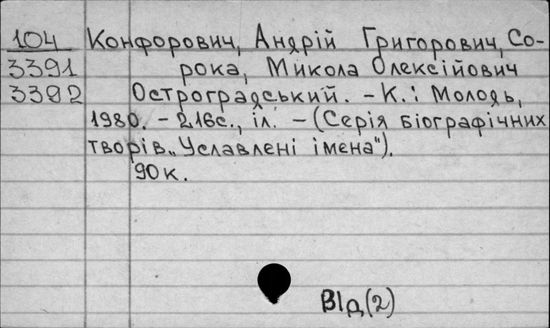 104 Конфорович, Андрій Григорович, Со-
3391 рока, Микола Олексійович
3392 Остроградський. – К.: Молодь,
1980. – 216с., іл. – (Серія біографічних
творів „Уславлені імена").
90к.
ВІд(2)